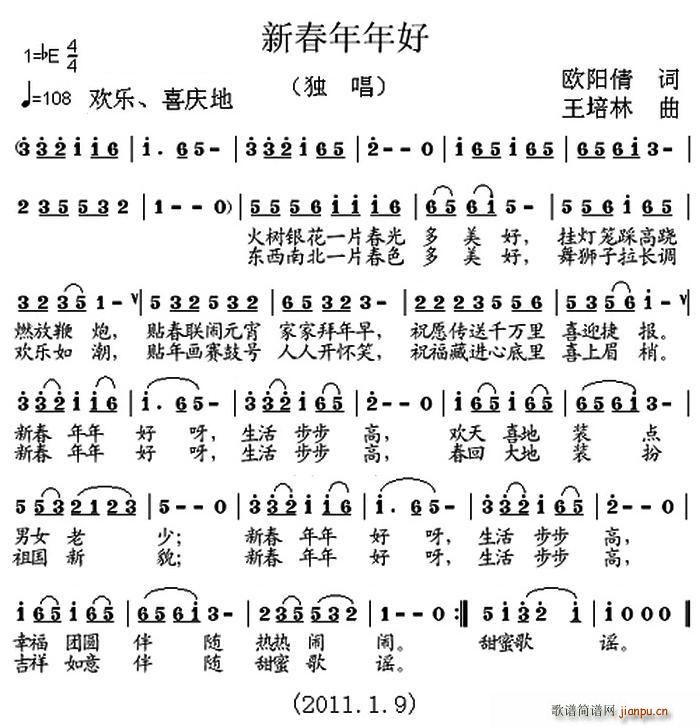 新春年年好
1=♭E 4/4
（独 唱）
欧阳倩 词
♩=108 欢乐、喜庆地
王培林 曲
(3 3 2 i i 6 | i . 6 5 - | 3 3 2 i 6 5 | 2 - - 0 | i 6 5 i 6 5 | 6 5 6 i 3 - |
2 3 5 5 3 2 | 1 - - 0) | 5 5 5 6 i i i 6 | 6 5 6 i 5 - | 5 5 6 i 6 5 |
火树银花一片春光 多 美 好，挂灯笼踩高跷
东西南北一片春色 多 美 好，舞狮子拉长调
3 2 3 5 1 - ∨ | 5 3 2 5 3 2 | 6 6 5 6 3 - | 2 2 2 3 5 6 3 2 | 5 3 5 6 i - ∨ |
燃放鞭 炮， 贴春联闹元宵 家家拜年早， 祝愿传送千万里 喜迎捷 报。
欢乐如 潮， 贴年画赛鼓号 人人开怀笑， 祝福藏进心底里 喜上眉 梢。
3 3 2 i i 6 | i . 6 5 - | 3 3 2 i 6 5 | 2 - - 0 | i 6 5 i 6 5 | 6 5 6 i 3 - |
新春 年年 好 呀，生活 步步 高， 欢天 喜地 装 点
新春 年年 好 呀，生活 步步 高， 春回 大地 装 扮
5 5 3 2 1 2 3 | 5 - - 0 | 3 3 2 i i 6 | i . 6 5 - | 3 3 2 i 6 5 | 2 - - 0 |
男女 老 少； 新春 年年 好 呀，生活 步步 高，
祖国 新 貌； 新春 年年 好 呀，生活 步步 高，
i 6 5 i 6 5 | 6 5 6 i 3 - | 2 3 5 5 3 2 | 1 - - 0 :‖ 5 i 3 2 i | i - - 0 ‖
幸福 团圆 伴 随 热热 闹 闹。 甜蜜歌 谣。
吉祥 如意 伴 随 甜蜜 歌 谣。
(2011.1.9)
歌谱简谱网
jianpu.cn